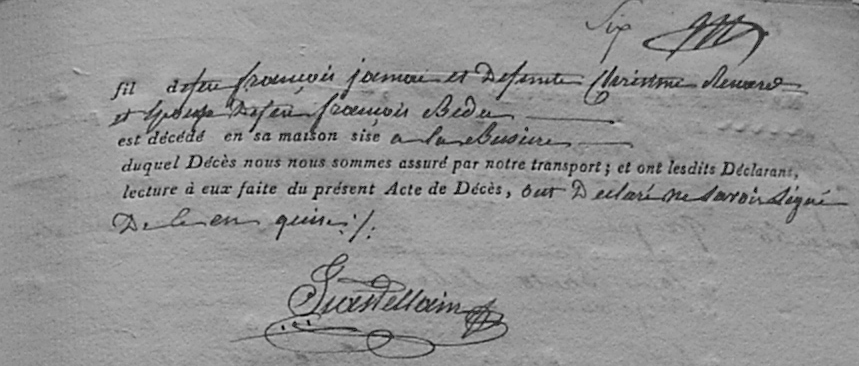 Six
fil defeu françois jamain et Defunte Christine Renard
et Epouse Defeu françois Bedu
est décédé en sa maison sise a la Busiere
duquel Décès nous nous sommes assuré par notre transport ; et ont lesdits Déclarans,
lecture à eux faite du présent Acte de Décès, ont Declaré ne savoir signé
De ce en quise :/.